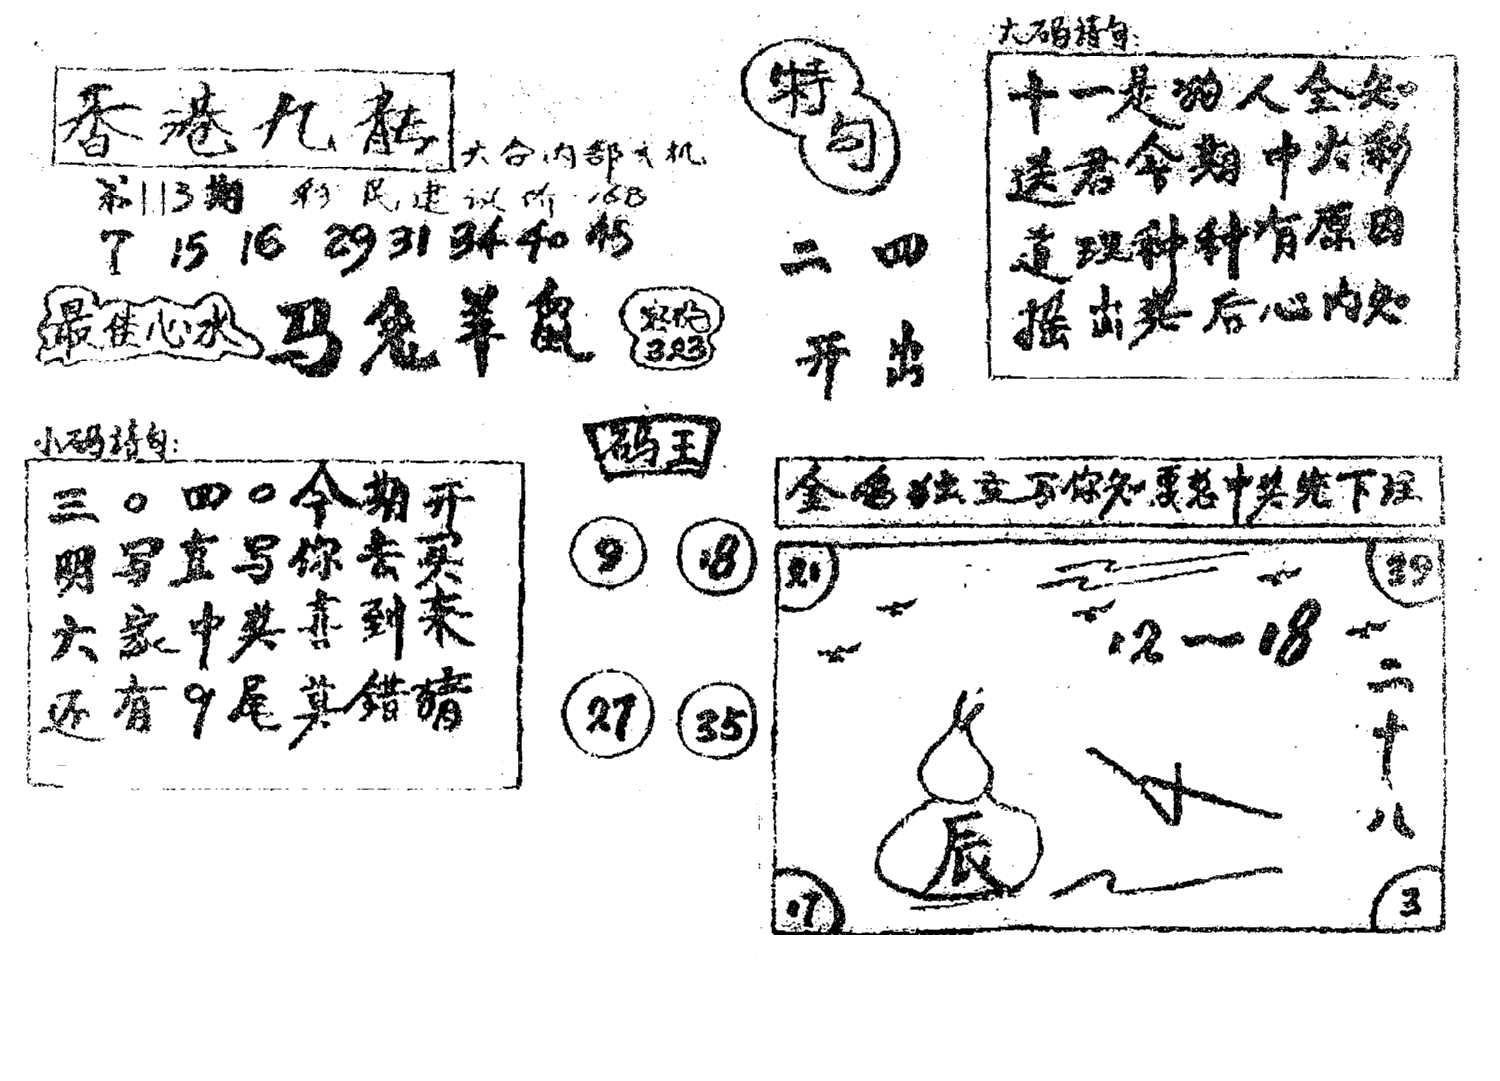 香港九龍
六合内部玄机
第113期 彩民建议价 168
7 15 16 29 31 34 40 45
最佳心水 马兔羊鼠
密碼
323
特
句
二四
开出
大码诗句:
十一是功人全知
送君今期中大彩
道理种种有原因
摇出奖后心内知
小码诗句:
三〇四〇今期开
明写直写你去买
大家中奖喜到来
还有9尾莫错猜
码王
9 18
27 35
金鸡独立写你知要想中奖先下注
21 39
12一18
二十八
辰
17 3